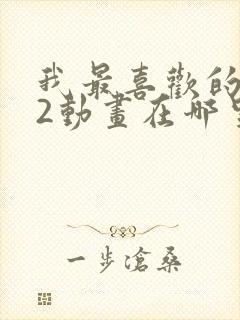 我最喜歡的
2動畫在哪
一步滄桑